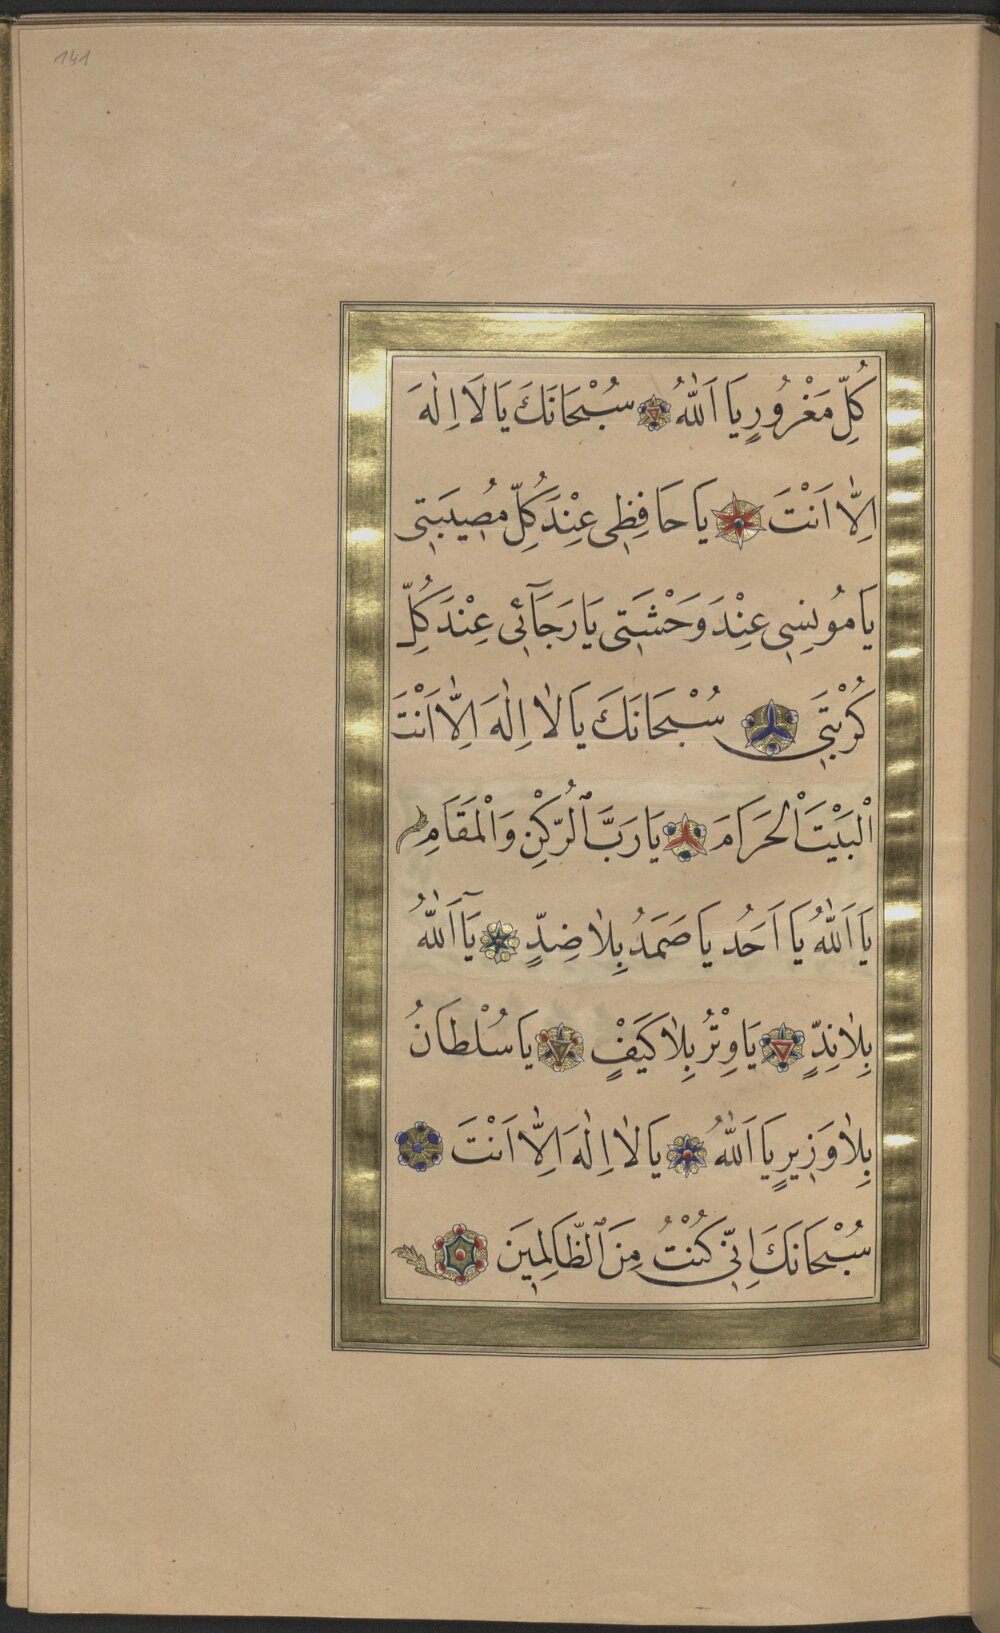 141
كُلِّ مَغْرُورٍ يَا اَللّٰهُ سُبْحَانَكَ يَا لَا اِلٰهَ
اِلَّا اَنْتَ يَا حَافِظِى عِنْدَ كُلِّ مُصِيبَتِى
يَا مُونِسِى عِنْدَ وَحْشَتِى يَا رَجَآئِى عِنْدَ كُلِّ
كُرْبَتِى سُبْحَانَكَ يَا لَا اِلٰهَ اِلَّا اَنْتَ
الْبَيْتَ الْحَرَامَ يَا رَبَّ الرُّكْنِ وَالْمَقَامِ
يَا اَللّٰهُ يَا اَحَدُ يَا صَمَدُ بِلَا ضِدٍّ يَآ اَللّٰهُ
بِلَا نِدٍّ يَا وِتْرُ بِلَا كَيْفٍ يَا سُلْطَانُ
بِلَا وَزِيرٍ يَا اَللّٰهُ يَا لَا اِلٰهَ اِلَّا اَنْتَ
سُبْحَانَكَ اِنِّى كُنْتُ مِنَ الظَّالِمِينَ